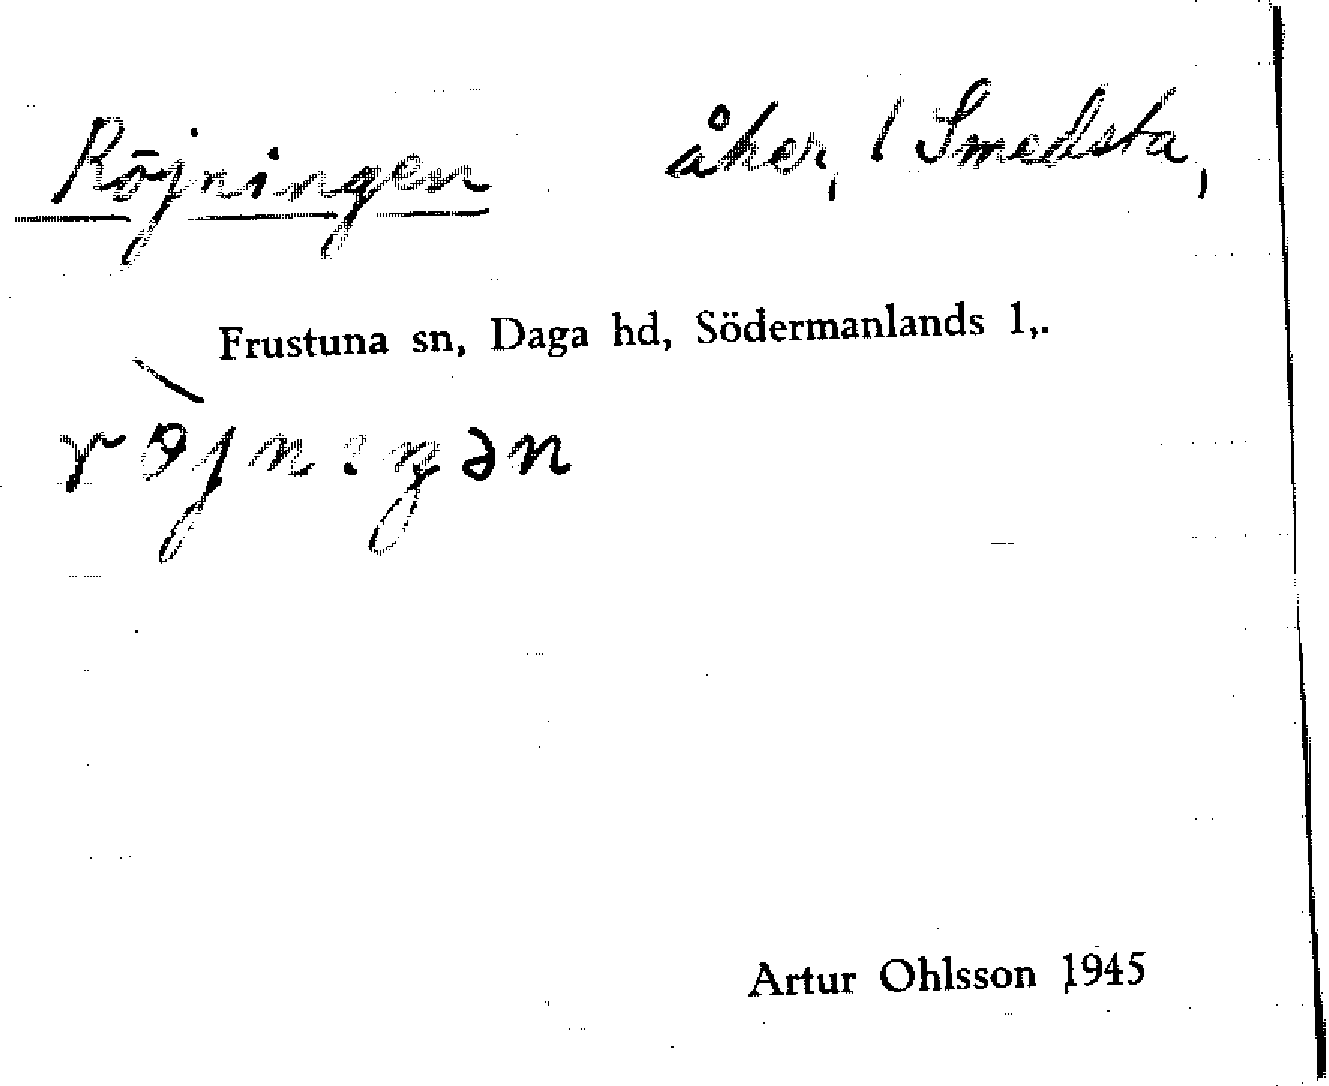 Röjningen åker, / Smedsta,
Frustuna sn, Daga hd, Södermanlands l,.
Artur Ohlsson 1945